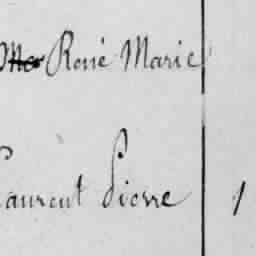 René Marie
Laurent Pierre 1